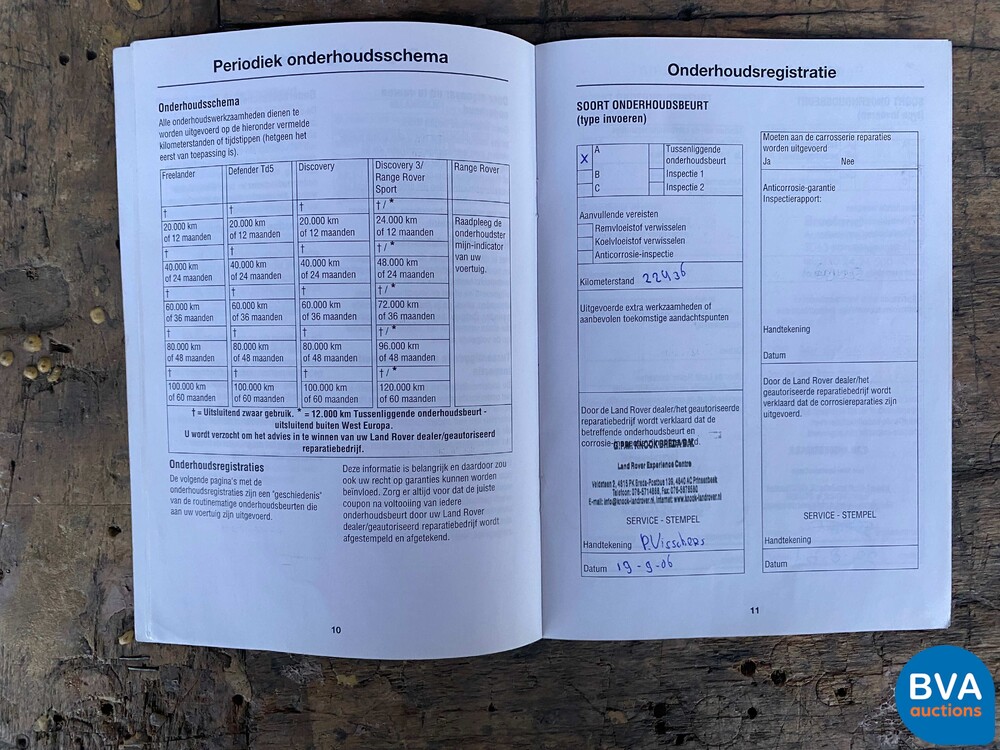 Periodiek onderhoudsschema
Onderhoudsschema
Alle onderhoudswerkzaamheden dienen te
worden uitgevoerd op de hieronder vermelde
kilometerstanden of tijdstippen (hetgeen het
eerst van toepassing is).
Freelander
Defender Td5
Discovery
Discovery 3/
Range Rover
Sport
Range Rover
† † † † / *
20.000 km
of 12 maanden
20.000 km
of 12 maanden
20.000 km
of 12 maanden
24.000 km
of 12 maanden
Raadpleeg de
onderhoudster
mijn-indicator
van uw
voertuig.
† † † † / *
40.000 km
of 24 maanden
40.000 km
of 24 maanden
40.000 km
of 24 maanden
48.000 km
of 24 maanden
† † † † / *
60.000 km
of 36 maanden
60.000 km
of 36 maanden
60.000 km
of 36 maanden
72.000 km
of 36 maanden
† † † † / *
80.000 km
of 48 maanden
80.000 km
of 48 maanden
80.000 km
of 48 maanden
96.000 km
of 48 maanden
† † † † / *
100.000 km
of 60 maanden
100.000 km
of 60 maanden
100.000 km
of 60 maanden
120.000 km
of 60 maanden
† = Uitsluitend zwaar gebruik. * = 12.000 km Tussenliggende onderhoudsbeurt -
uitsluitend buiten West Europa.
U wordt verzocht om het advies in te winnen van uw Land Rover dealer/geautoriseerd
reparatiebedrijf.
Onderhoudsregistraties
De volgende pagina's met de
onderhoudsregistraties zijn een "geschiedenis"
van de routinematige onderhoudsbeurten die
aan uw voertuig zijn uitgevoerd.
Deze informatie is belangrijk en daardoor zou
ook uw recht op garanties kunnen worden
beïnvloed. Zorg er altijd voor dat de juiste
coupon na voltooiing van iedere
onderhoudsbeurt door uw Land Rover
dealer/geautoriseerd reparatiebedrijf wordt
afgestempeld en afgetekend.
10
Onderhoudsregistratie
SOORT ONDERHOUDSBEURT
(type invoeren)
X A Tussenliggende
onderhoudsbeurt
B Inspectie 1
C Inspectie 2
Aanvullende vereisten
Remvloeistof verwisselen
Koelvloeistof verwisselen
Anticorrosie-inspectie
Kilometerstand 22436
Uitgevoerde extra werkzaamheden of
aanbevolen toekomstige aandachtspunten
Door de Land Rover dealer/het geautoriseerde
reparatiebedrijf wordt verklaard dat de
betreffende onderhoudsbeurt en
corrosie-
KNOOK BREDA B.V.
Land Rover Experience Centre
SERVICE - STEMPEL
Handtekening P. Visschers
Datum 19-9-06
Moeten aan de carrosserie reparaties
worden uitgevoerd
Ja Nee
Anticorrosie-garantie
Inspectierapport:
Handtekening
Datum
Door de Land Rover dealer/het
geautoriseerde reparatiebedrijf wordt
verklaard dat de corrosiereparaties zijn
uitgevoerd.
SERVICE - STEMPEL
Handtekening
Datum
11
BVA
auctions